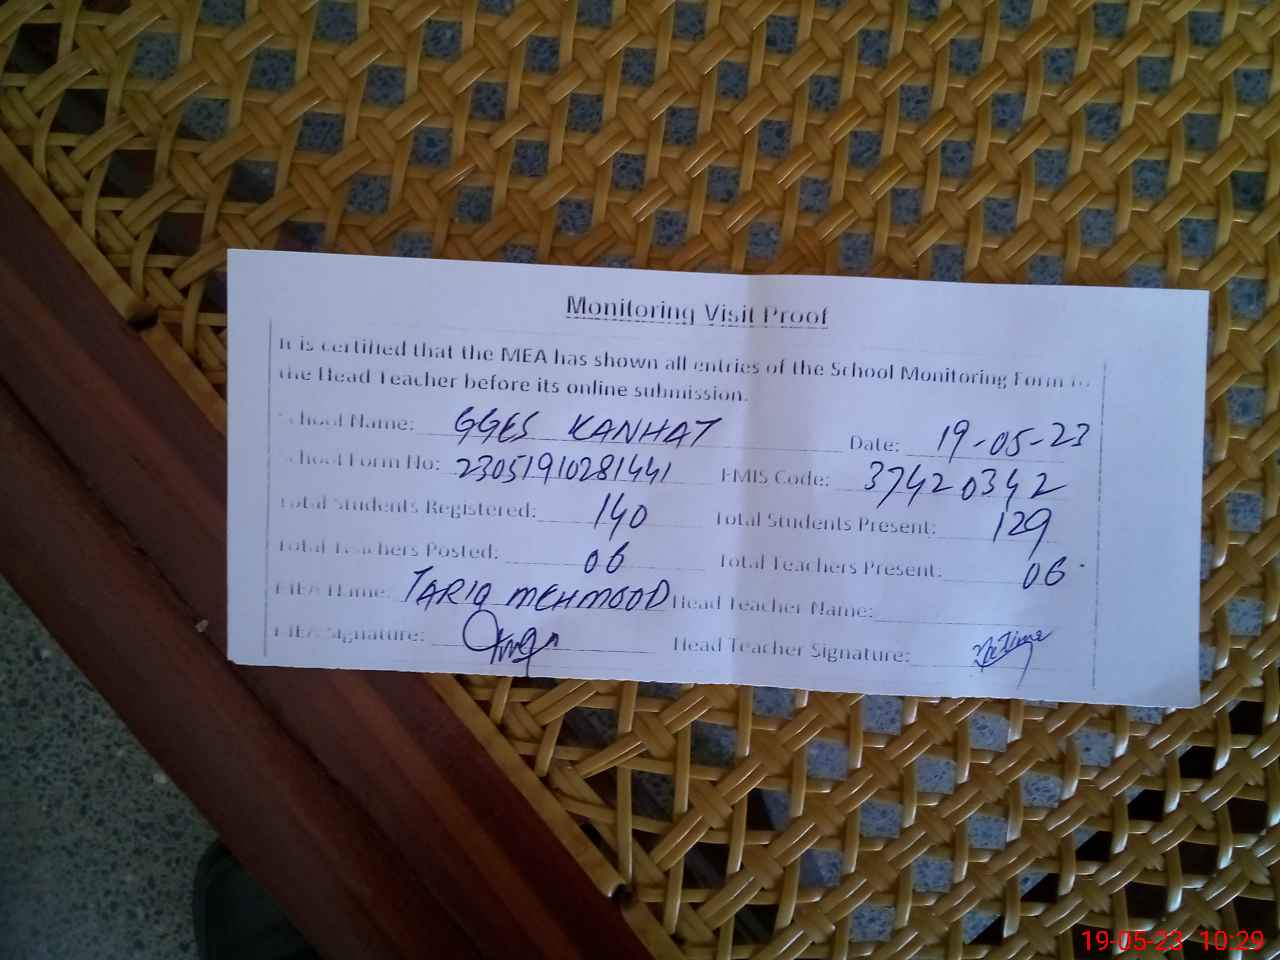 Monitoring Visit Proof
It is certified that the MEA has shown all entries of the School Monitoring Form to
the Head Teacher before its online submission.
School Name: GGES KANHAT Date: 19-05-23
School Form No: 23051910281441 EMIS Code: 37420342
Total Students Registered: 140 Total Students Present: 129
Total Teachers Posted: 06 Total Teachers Present: 06
MEA Name: TARIQ MEHMOOD Head Teacher Name:
MEA Signature: Head Teacher Signature:
19-05-23 10:29